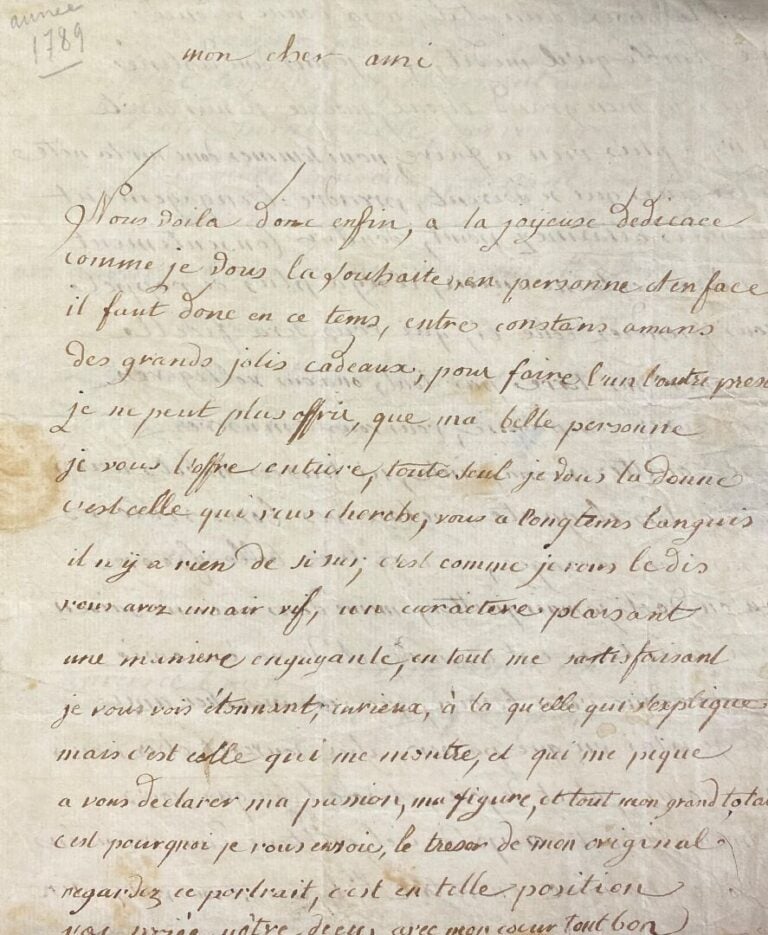 année
1789
mon cher ami
Nous voila donc enfin, a la joyeuse dedicace
comme je vous la souhaite, en personne et en face
il faut donc en ce tems, entre constans amans
des grands jolis cadeaux, pour faire l'un l'autre prese
je ne peut plus offrir, que ma belle personne
je vous l'offre entiere, toute seul je vous la donne
c'est celle qui vous cherche, vous a longtems languis
il n'ÿ a rien de si sur, c'est comme je vous le dis
vous avez un air vif, un caractère plaisant
une maniere engagante, en tout me satisfaisant
je vous vois étonnant, curieux, à la qu'elle qui s'explique
mais c'est celle qui me montre, et qui me pique
a vous declarer ma passion, ma figure, et tout mon grand total
c'est pourquoi je vous envoie, le tresor de mon original
regardez ce portrait, c'est en telle position
j'ai priée nôtre dieu, avec mon cœur tout bon